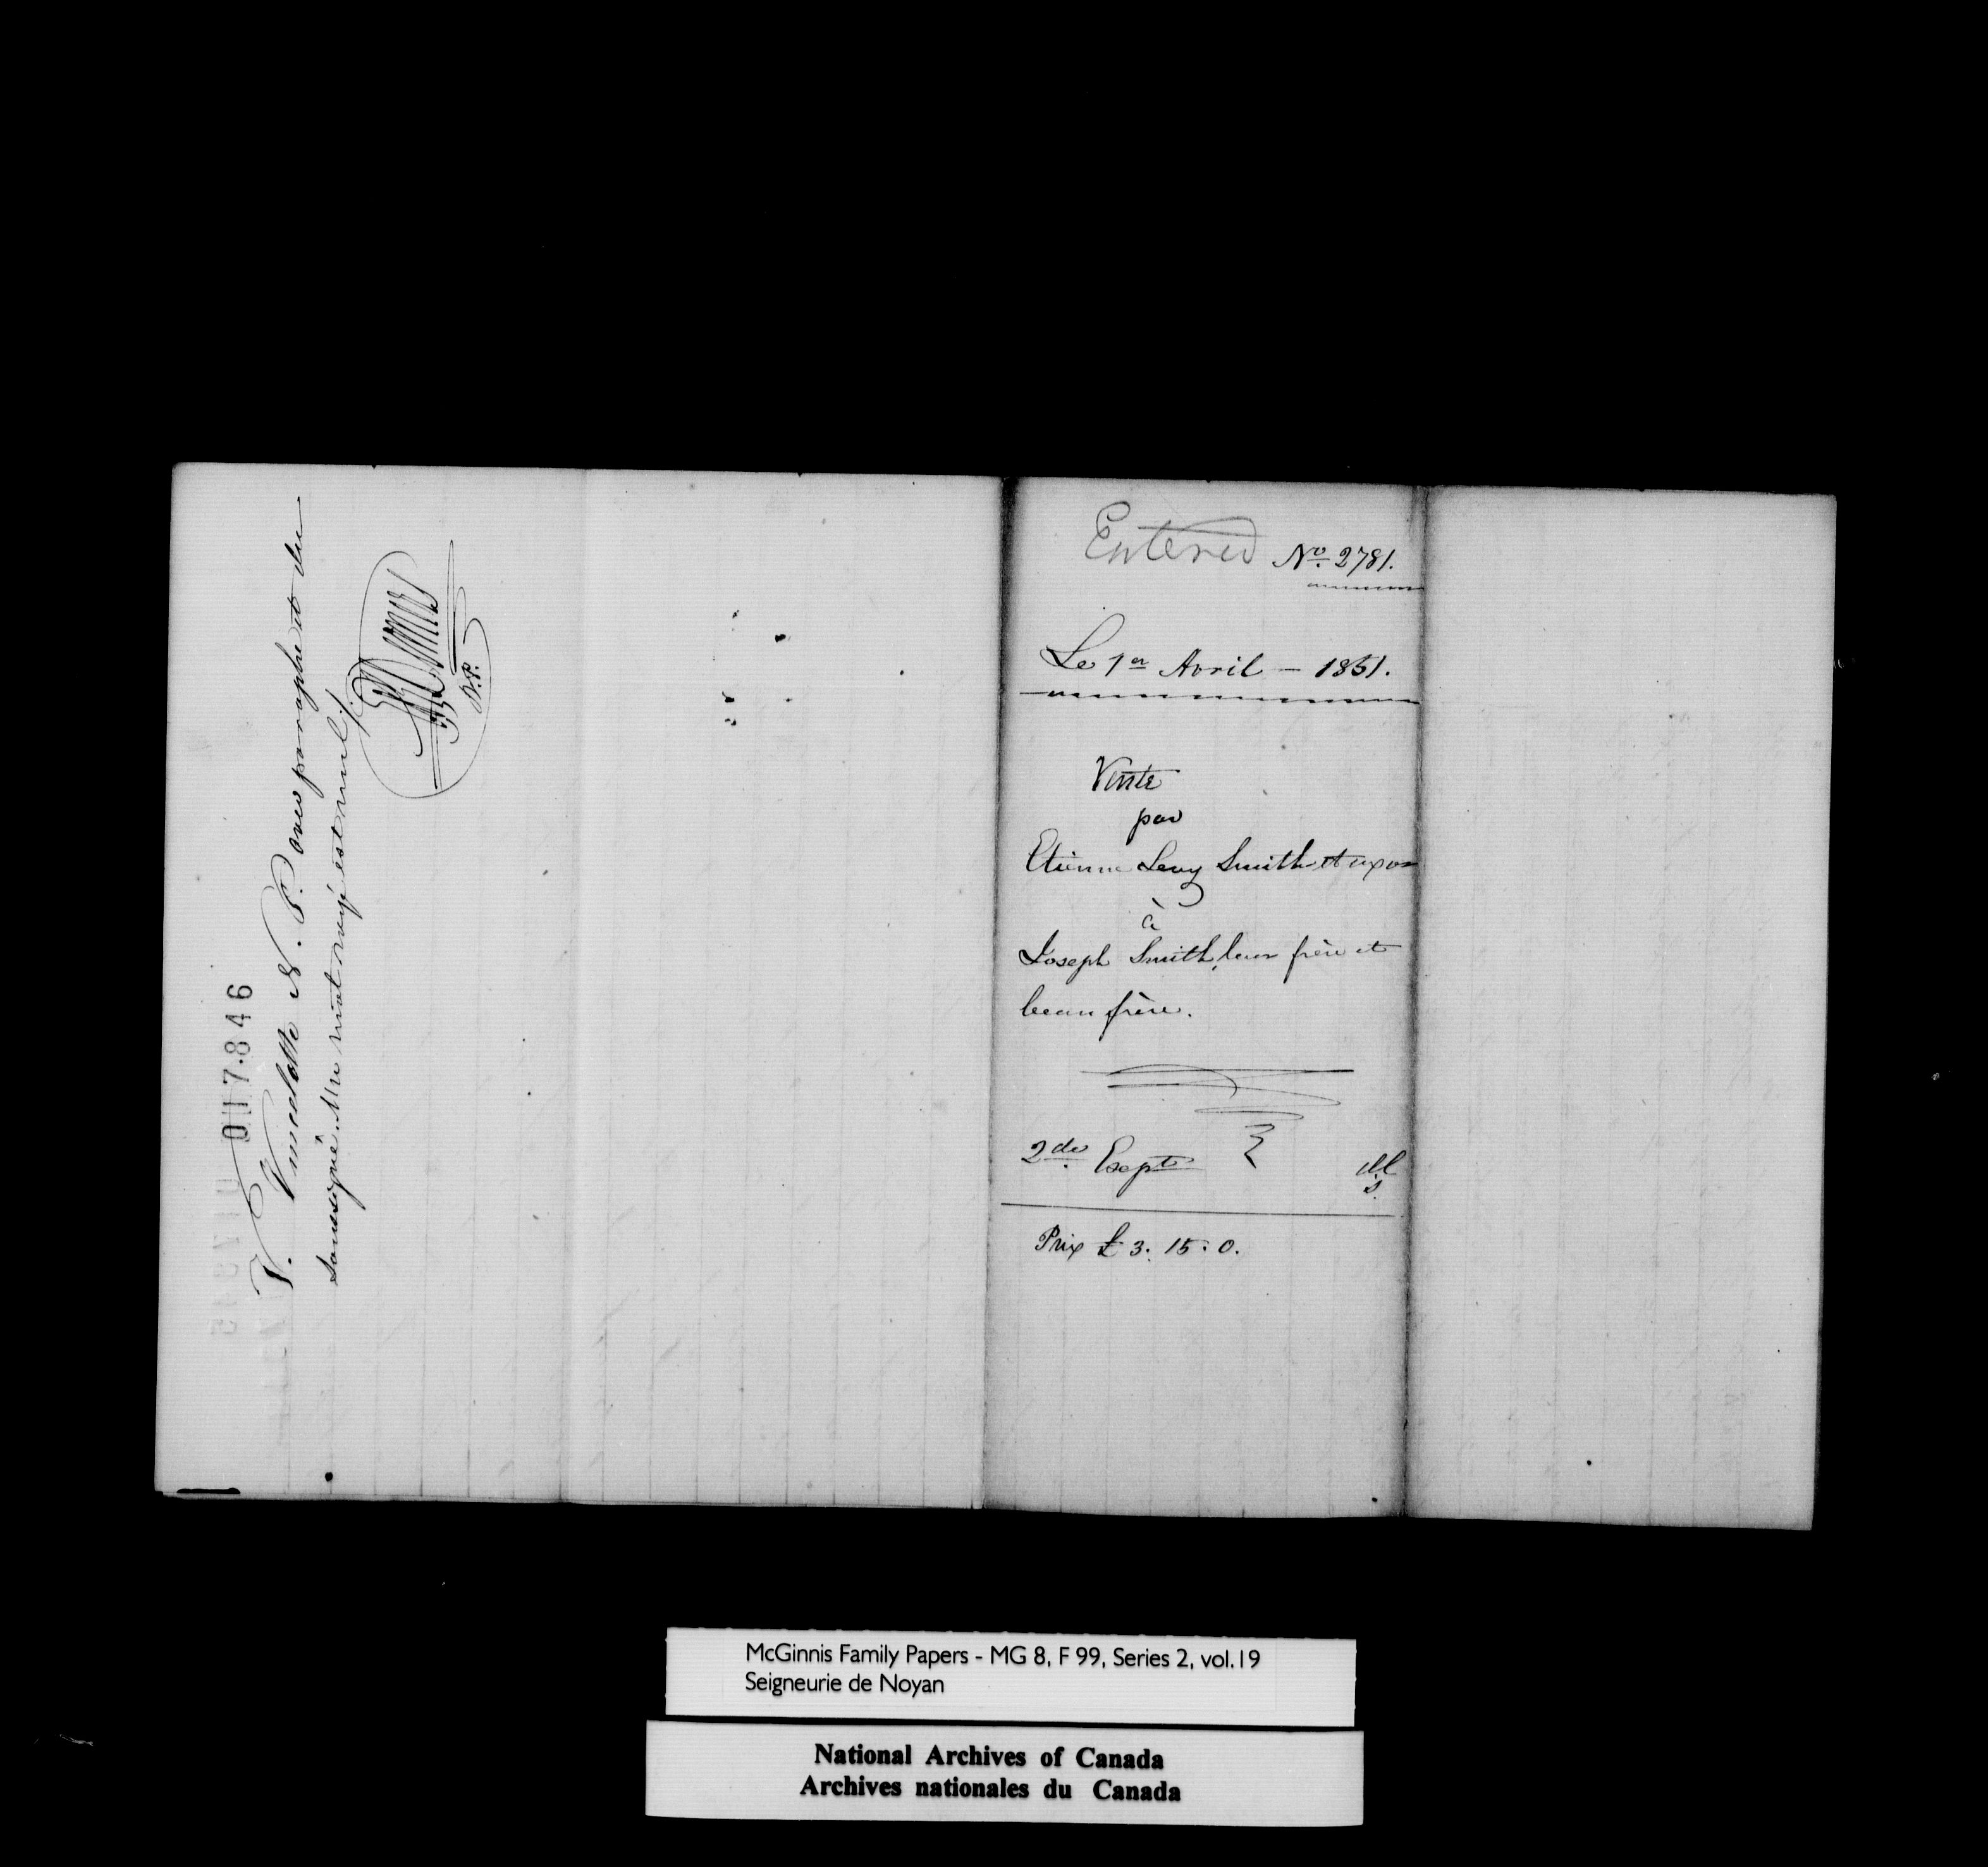 V. Vincelette N. P. avec paraphe et du
soussigné. Un mot rayé est nul./.
N.P.
017846
Entered No. 2781.
Le 1er Avril – 1851.
Vente
par
Etienne Levy Smith et uxor
à
Joseph Smith, leur frère et
beau frère.
2de Expt
Prix £ 3. 15. 0.
McGinnis Family Papers - MG 8, F 99, Series 2, vol.19
Seigneurie de Noyan
National Archives of Canada
Archives nationales du Canada